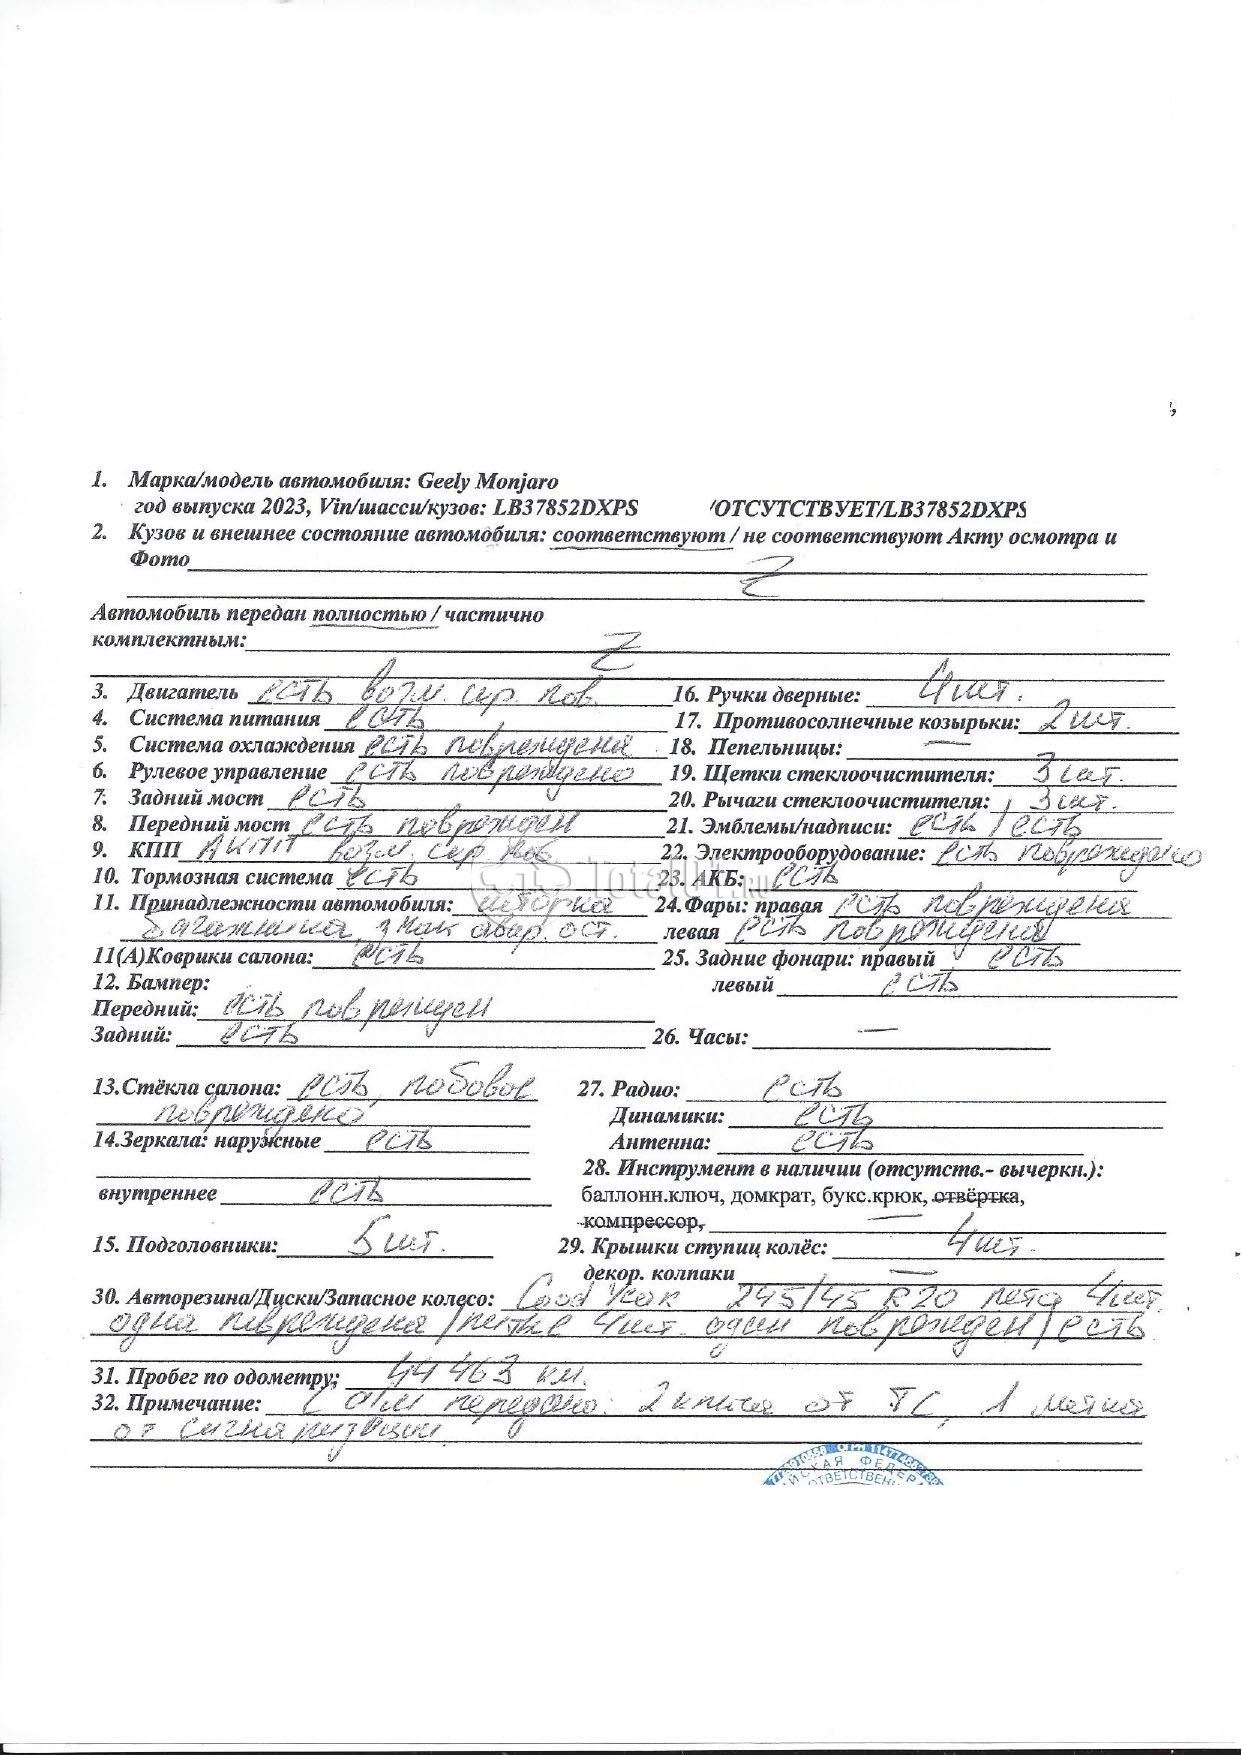 1. Марка/модель автомобиля: Geely Monjaro
год выпуска 2023, Vin/шасси/кузов: LB37852DXPS /ОТСУТСТВУЕТ/LB37852DXPS
2. Кузов и внешнее состояние автомобиля: соответствуют / не соответствуют Акту осмотра и
Фото Z
Автомобиль передан полностью / частично
комплектным: Z
3. Двигатель есть возм. скр. пов. 16. Ручки дверные: 4 шт.
4. Система питания есть 17. Противосолнечные козырьки: 2 шт.
5. Система охлаждения есть повреждена 18. Пепельницы: —
6. Рулевое управление есть повреждено 19. Щетки стеклоочистителя: 3 шт.
7. Задний мост есть 20. Рычаги стеклоочистителя: 3 шт.
8. Передний мост есть поврежден 21. Эмблемы/надписи: есть / есть
9. КПП АКПП возм. скр пов 22. Электрооборудование: есть повреждено
10. Тормозная система есть 23. АКБ: есть
TotalDT.RU
11. Принадлежности автомобиля: шторка 24.Фары: правая есть повреждена
багажника, знак авар. ост. левая есть повреждена
11(А)Коврики салона: есть 25. Задние фонари: правый есть
12. Бампер: левый есть
Передний: есть поврежден
Задний: есть 26. Часы: —
13.Стёкла салона: есть, лобовое 27. Радио: есть
повреждено Динамики: есть
14.Зеркала: наружные есть Антенна: есть
28. Инструмент в наличии (отсутств.- вычеркн.):
внутреннее есть баллонн.ключ, домкрат, букс.крюк, отвёртка,
компрессор, —
15. Подголовники: 5 шт. 29. Крышки ступиц колёс: 4 шт.
декор. колпаки —
30. Авторезина/Диски/Запасное колесо: Good Year 245/45 R20 лето 4 шт.
одна повреждена / литые 4 шт. один поврежден / есть
31. Пробег по одометру; 44 463 км.
32. Примечание: С а/м передано: 2 ключа от ТС, 1 метка
от сигнализации
ЙСКАЯ ФЕДЕРА
ОТВЕТСТВЕНН